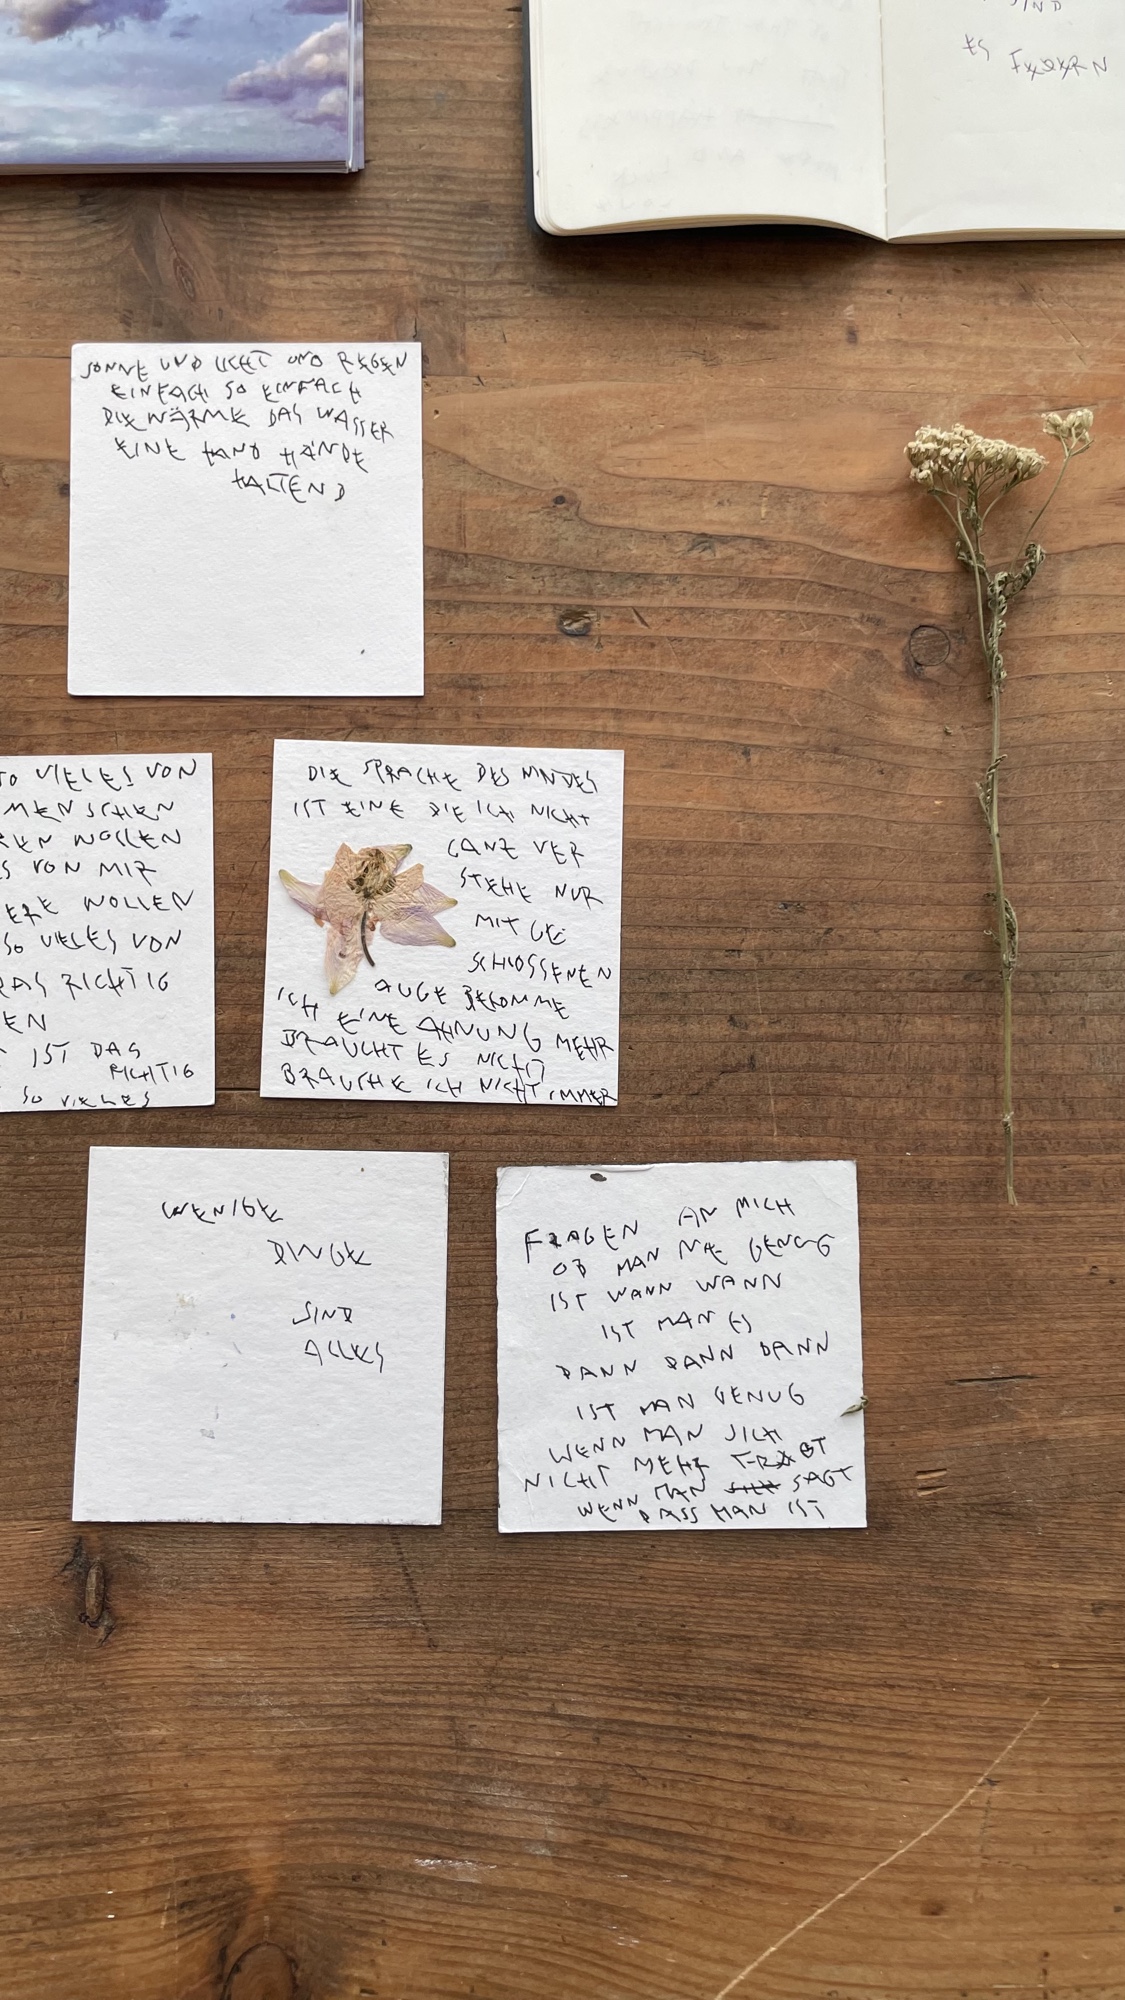 SIND
ES
SONNE UND LICHT UND REGEN
EINFACH SO EINFACH
DIE WÄRME DAS WASSER
EINE HAND HÄNDE
HALTEND
SO VIELES VON
MENSCHEN
WOLLEN
VON MIR
WOLLEN
SO VIELES VON
DAS RICHTIG
IST DAS
RICHTIG
SO VIELES
DIE SPRACHE DES WINDES
IST EINE DIE ICH NICHT
GANZ VER
STEHE NUR
MIT GE
SCHLOSSENEN
AUGE BEKOMME
ICH EINE AHNUNG MEHR
BRAUCHT ES NICHT
BRAUCHE ICH NICHT IMMER
WENIGE
DINGE
SIND
ALLES
FRAGEN AN MICH
OB MAN NIE GENUG
IST WANN WANN
IST MAN ES
DANN DANN DANN
IST MAN GENUG
WENN MAN SICH
NICHT MEHR FRAGT
WENN MAN SAGT
DASS MAN IST